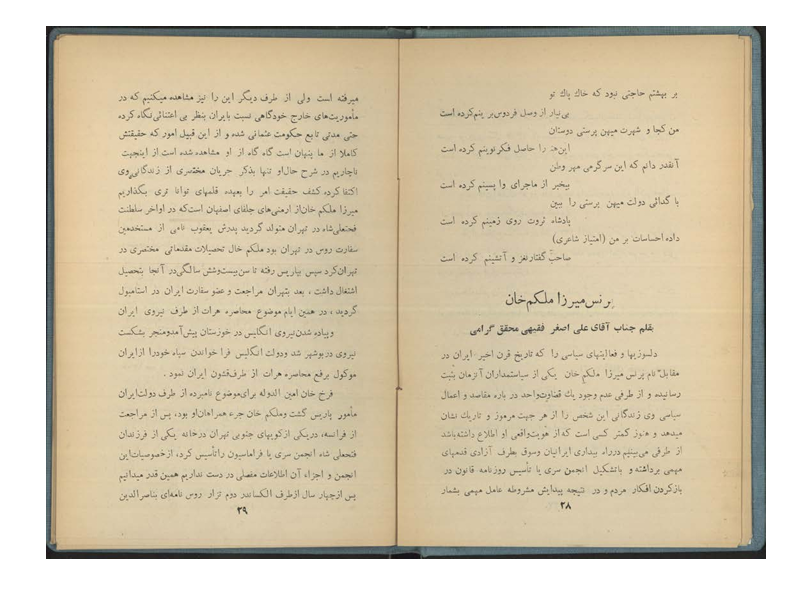 بر بهشتم حاجتی نبود که خاك پاك تو
بی‌نیاز از وصل فردوس بر ینم کرده است
من کجا و شهرت میهن پرستی دوستان
این هنر را حاصل فکر نوینم کرده است
آنقدر دانم که این سرگرمی مهر وطن
بیخبر از ماجرای وا پسینم کرده است
با گدائی دولت میهن پرستی را ببین
پادشاه ثروت روی زمینم کرده است
داده احساسات بر من (امتیاز شاعری)
صاحب گفتار نغز و آتشینم کرده است
پرنس میرزا ملکم خان
بقلم جناب آقای علی اصغر فقیهی محقق گرامی
دلسوزیها و فعالیتهای سیاسی را که تاریخ قرن اخیر ایران در
مقابل نام پرنس میرزا ملکم خان یکی از سیاستمداران آنزمان ثبت
رسانیده و از طرفی عدم وجود یك قضاوت واحد در باره مقاصد و اعمال
سیاسی وی زندگانی این شخص را از هر جهت مرموز و تاریك نشان
میدهد و هنوز کمتر کسی است که از هویت واقعی او اطلاع داشته باشد
از طرفی می‌بینیم در راه بیداری ایرانیان وسوق بطرف آزادی قدمهای
مهمی برداشته و با تشکیل انجمن سری یا تأسیس روزنامه قانون در
باز کردن افکار مردم و در نتیجه پیدایش مشروطه عامل مهمی بشمار
۲۸
میرفته است ولی از طرف دیگر این را نیز مشاهده میکنیم که در
مأموریت‌های خارج خودگاهی نسبت بایران بنظر بی اعتنائی نگاه کرده
حتی مدتی تابع حکومت عثمانی شده و از این قبیل امور که حقیقتش
کاملا از ما پنهان است گاه گاه از او مشاهده شده است از اینجهت
ناچاریم در شرح حال او تنها بذکر جریان مختصری از زندگانی وی
اکتفا کرده کشف حقیقت امر را بعهده قلمهای توانا تری بگذاریم
میرزا ملکم خان از ارمنی‌های جلفای اصفهان است که در اواخر سلطنت
فتحعلی شاه در تهران متولد گردید پدرش یعقوب نامی از مستخدمین
سفارت روس در تهران بود ملکم خان تحصیلات مقدماتی مختصری در
تهران کرد سپس بپاریس رفته تا سن بیست وشش سالگی در آنجا بتحصیل
اشتغال داشت ، بعد بتهران مراجعت و عضو سفارت ایران در استامبول
گردید ، در همین ایام موضوع محاصره هرات از طرف نیروی ایران
وپیاده شدن نیروی انگلیس در خوزستان پیش آمد و منجر بشکست
نیروی در بوشهر شد ودولت انگلیس فرا خواندن سپاه خود را از ایران
موکول برفع محاصره هرات از طرف قشون ایران نمود .
فرخ خان امین الدوله برای موضوع نامبرده از طرف دولت ایران
مأمور پاریس گشت وملکم خان جزء همراهان او بود، پس از مراجعت
از فرانسه، در یکی از کویهای جنوبی تهران در خانه یکی از فرزندان
فتحعلی شاه انجمن سری یا فراماسیون را تأسیس کرد، از خصوصیات این
انجمن و اجزاء آن اطلاعات مفصلی در دست نداریم همین قدر میدانیم
پس از چهار سال از طرف الکساندر دوم تزار روس نامه‌ای بناصرالدین
۲۹